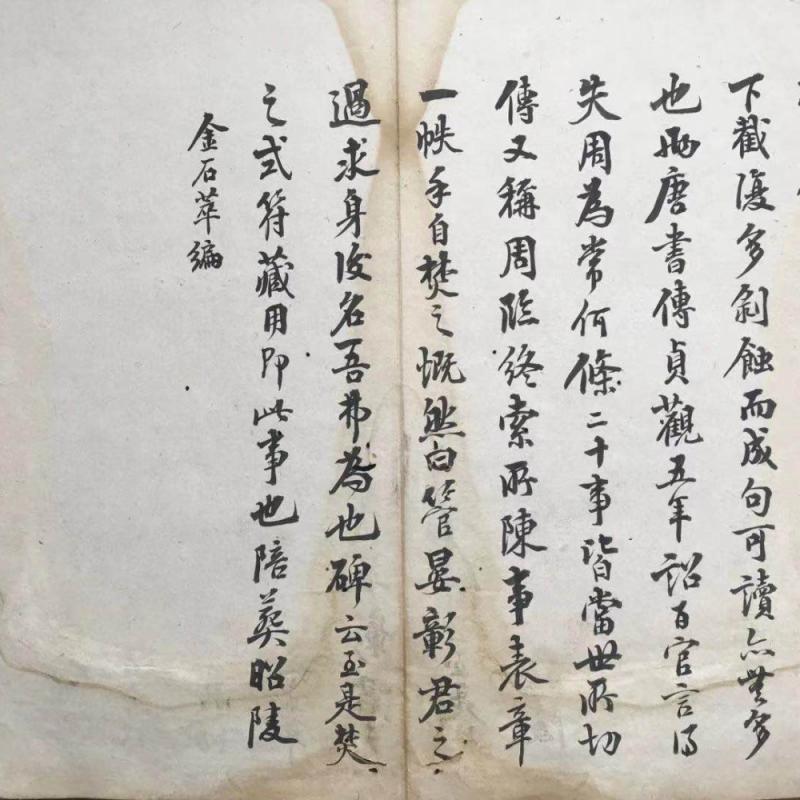 下截優多剝蝕而成句可讀亦無多
也按唐書傳貞觀五年詔百官言得
失周為常何條二十事皆當世所切
傳又稱周臨終索所陳事表章
一帙手自焚之慨然曰管晏彰君之
過求身後名吾弗為也碑云至是焚
之式符藏用即此事也陪葬昭陵
金石萃編